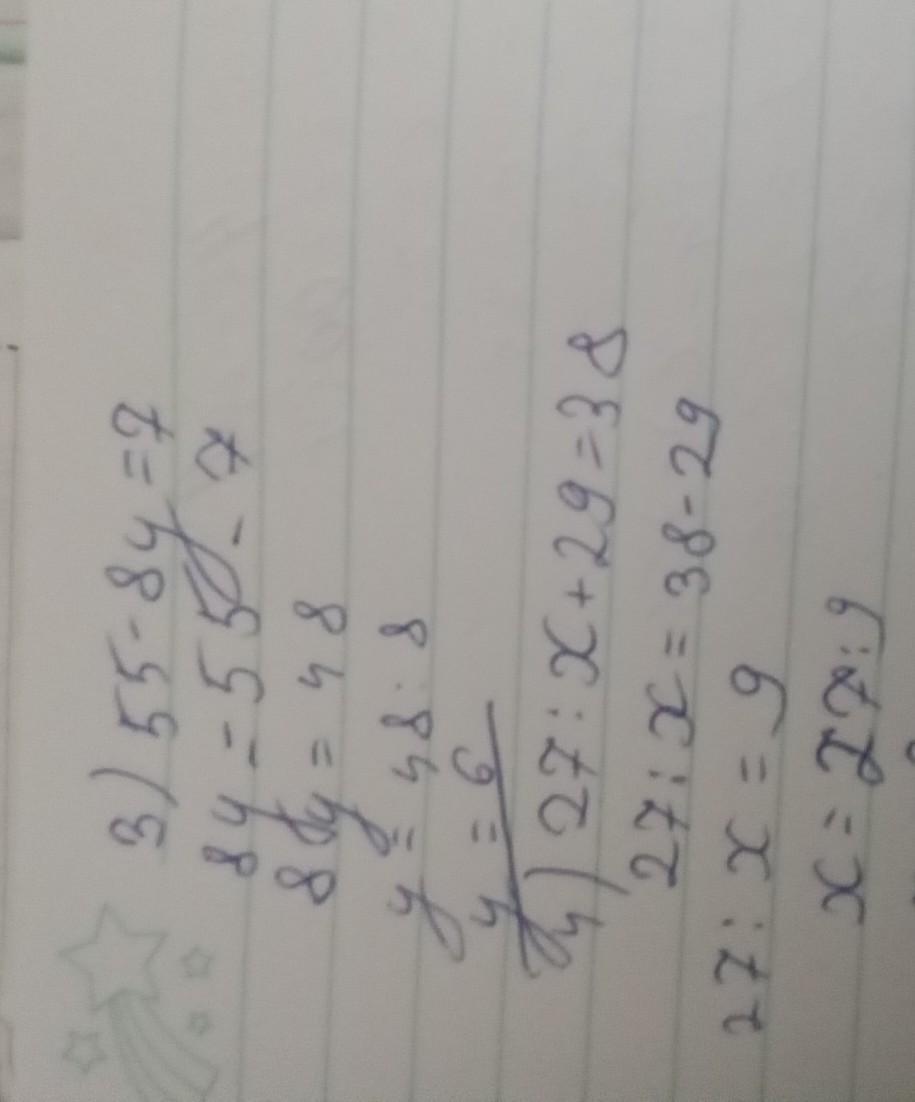 3) 55-8y=7
8y=55-7
8y=48
y=48:8
y=6
4) 27:x+29=38
27:x=38-29
27:x=9
x=27:9